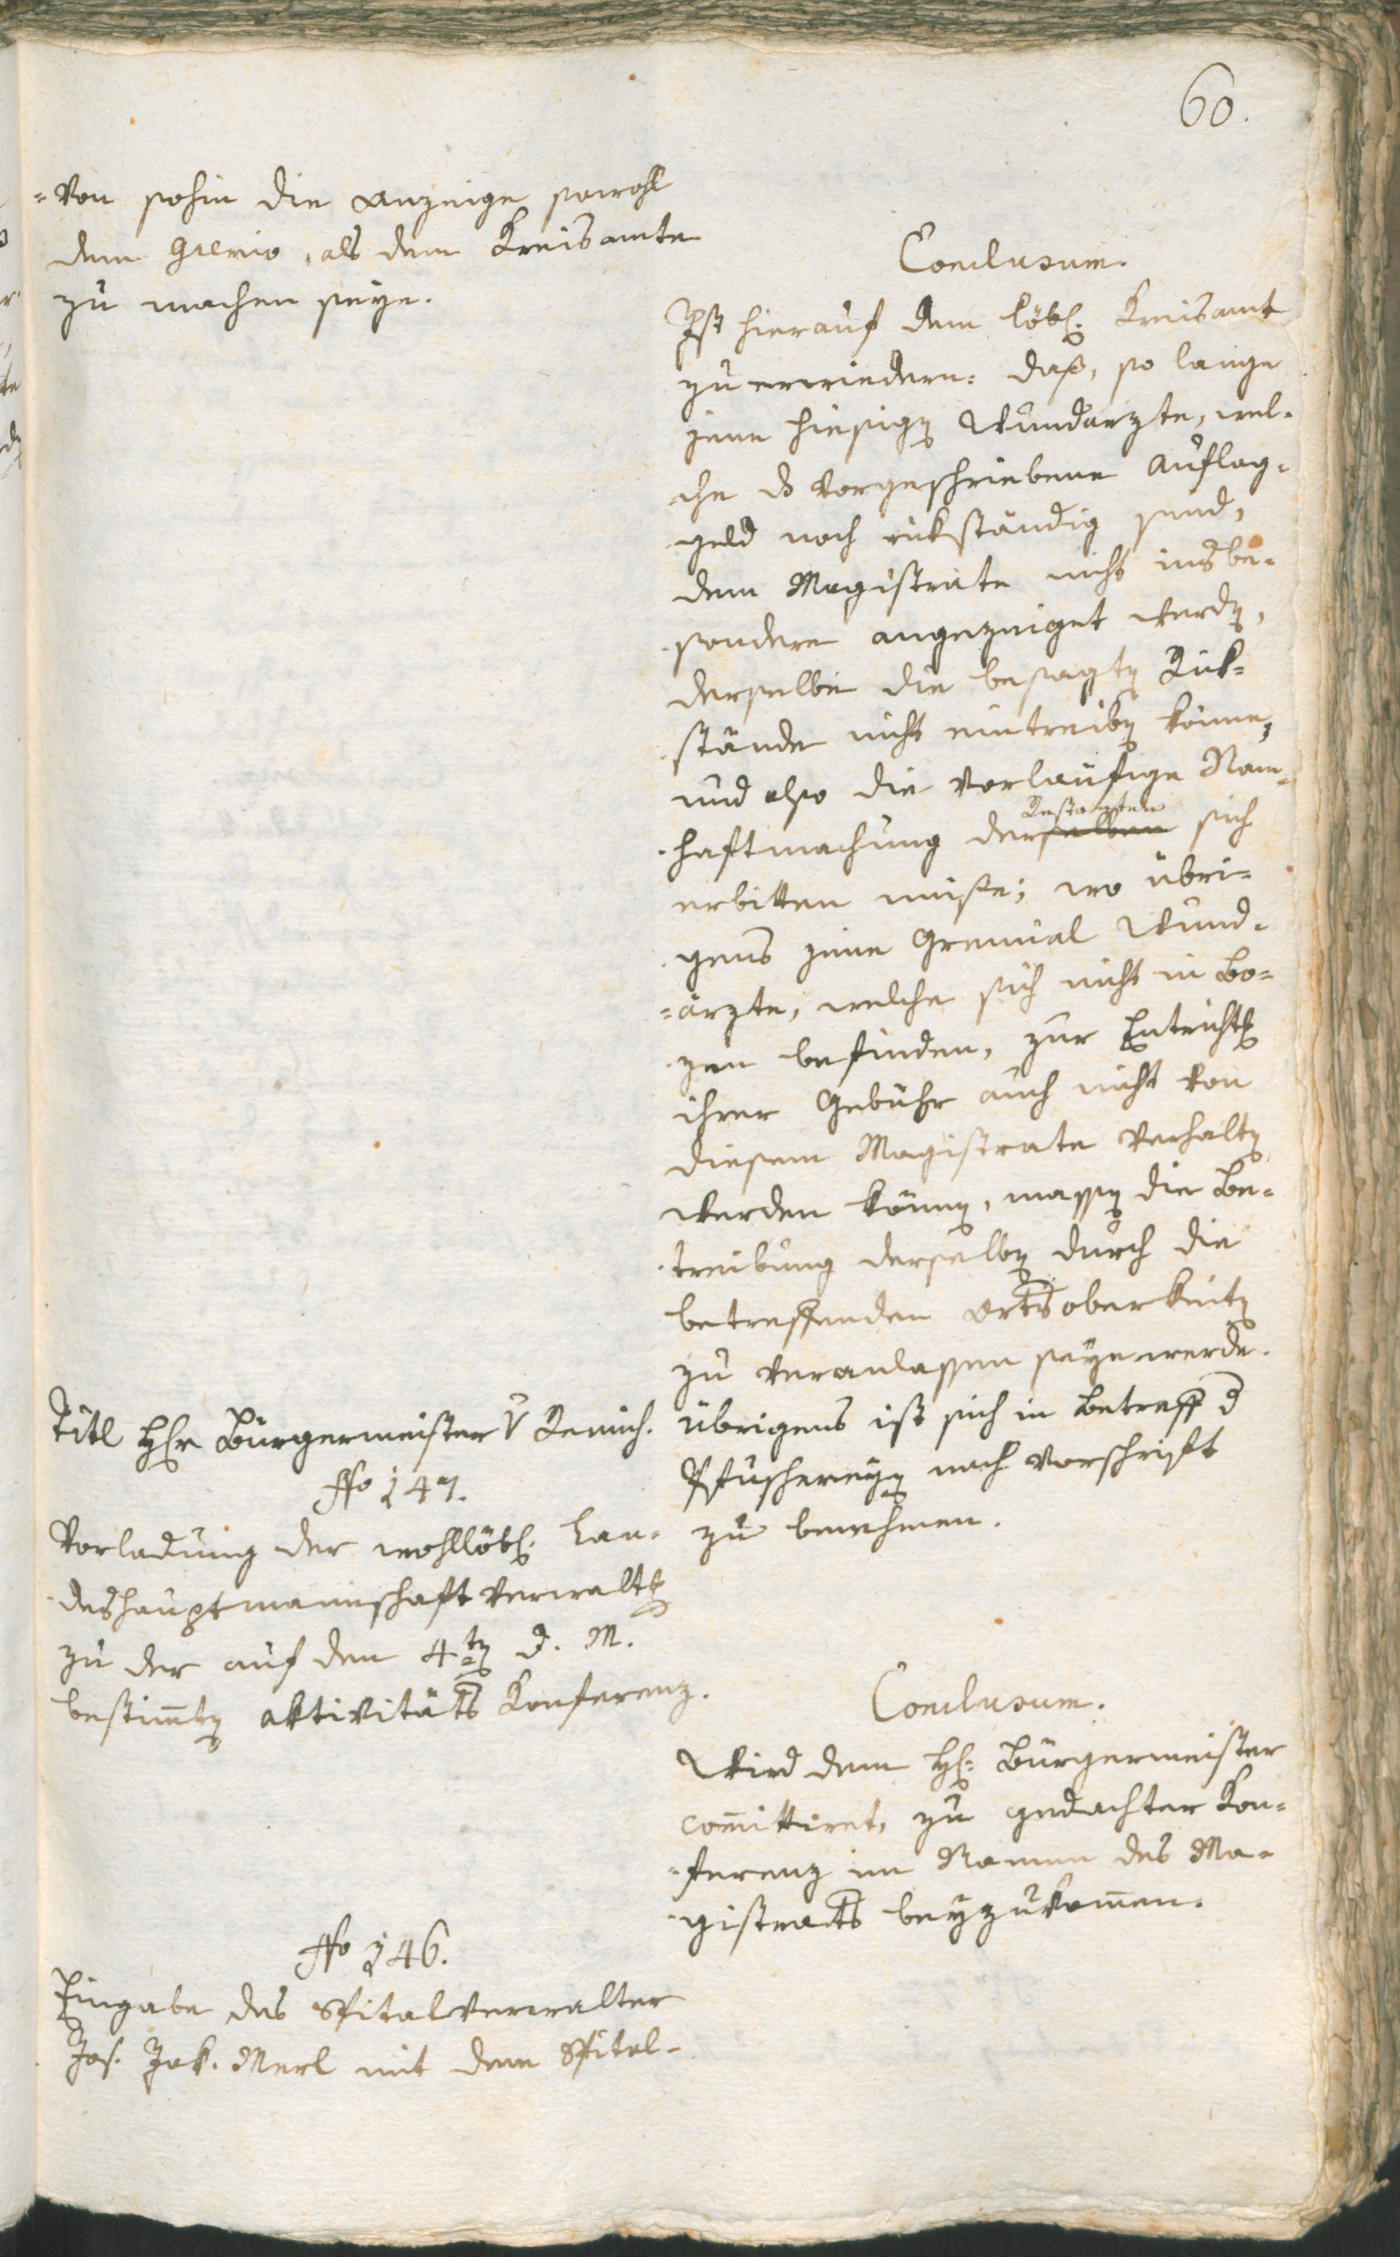 60.
=von sohin die Anzeige sowohl
dem Gremio, als dem Kreisamte
zu machen seye.
Conclusum.
Ist hierauf dem löbl. Kreisamt
zu erwiedern: daß, so lange
jene hiesigen Wundärzte, wel-
che ds vorgeschriebene Auflag-
geld noch rükständig sind,
dem Magistrate nicht insbe-
sondere angezeiget werden,
derselbe die besagten Rük-
stände nicht eintreiben könne,
und also die vorläufige Nam-
haftmachung derselben Restanten sich
erbitten müße; wo übri-
gens jene Gremial Wund-
=ärzte, welche sich nicht in Bo-
zen befinden, zur Entrichtung
ihrer Gebühr auch nicht von
diesem Magistrate verhalten
werden können, massen die Be-
treibung derselben durch die
betreffenden Ortsoberkeiten
zu veranlassen seyn werde.
übrigens ist sich in Betreff der
Pfuschereyen nach Vorschrift
zu benehmen.
Titl Hhr Bürgermeister
No 147.
Vorladung der wohllöbl. Lan-
deshauptmannschaft Verwaltung
zu der auf den 4ten d. M.
bestimten aktivitäts Konferenz.
Conclusum.
Wird dem Hh. Bürgermeister
committiret, zu gedachter Kon-
=ferenz im Namen des Ma-
gistrats beyzukommen.
No 146.
Eingabe des Spitalverwalter
Jos. Jak. Merl mit dem Spital-